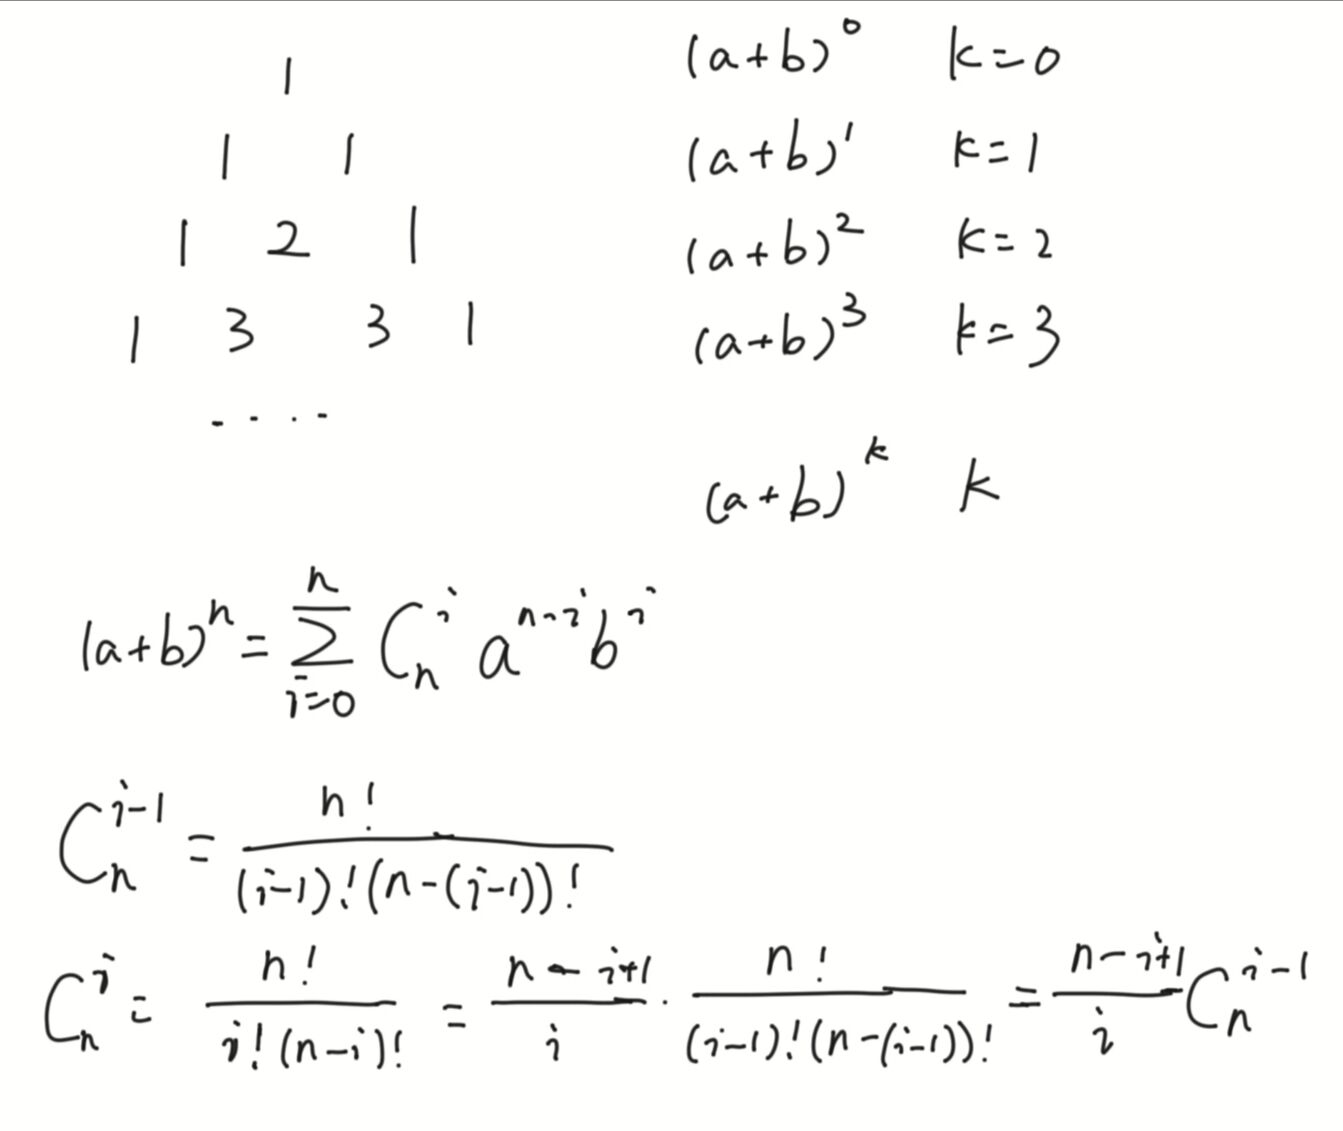 1 (a+b)^0 k=0
1 1 (a+b)^1 k=1
1 2 1 (a+b)^2 k=2
1 3 3 1 (a+b)^3 k=3
....
(a+b)^k k
(a+b)^n = \sum_{i=0}^{n} C_n^i a^{n-i} b^i
C_n^{i-1} = \frac{n!}{(i-1)!(n-(i-1))!}
C_n^i = \frac{n!}{i!(n-i)!} = \frac{n-i+1}{i} \cdot \frac{n!}{(i-1)!(n-(i-1))!} = \frac{n-i+1}{i} C_n^{i-1}